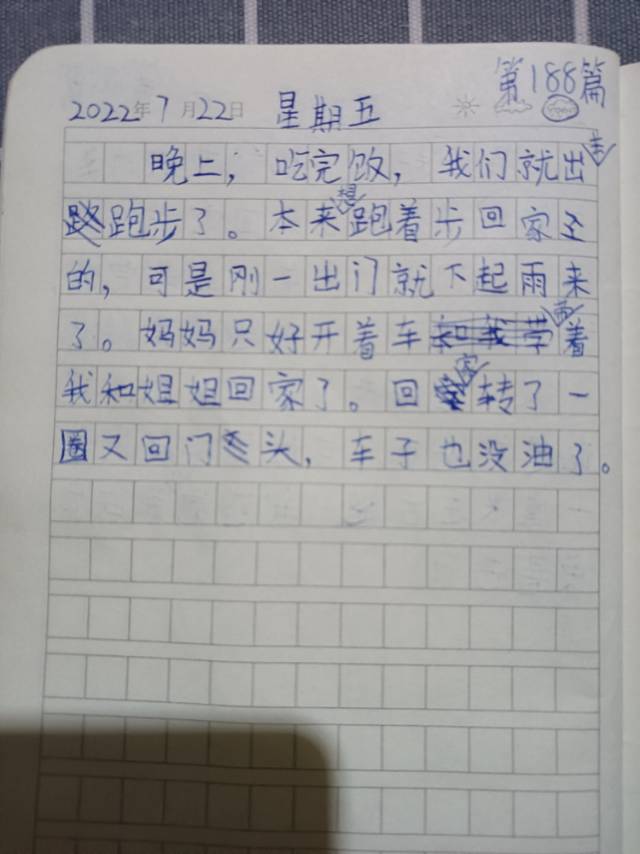 第188篇
2022年7月22日 星期五
晚上，吃完饭，我们就出去
跑步了。本来想跑着步回家
的，可是刚一出门就下起雨来
了。妈妈只好开着车带着
我和姐姐回家了。回家转了一
圈又回门头，车子也没油了。